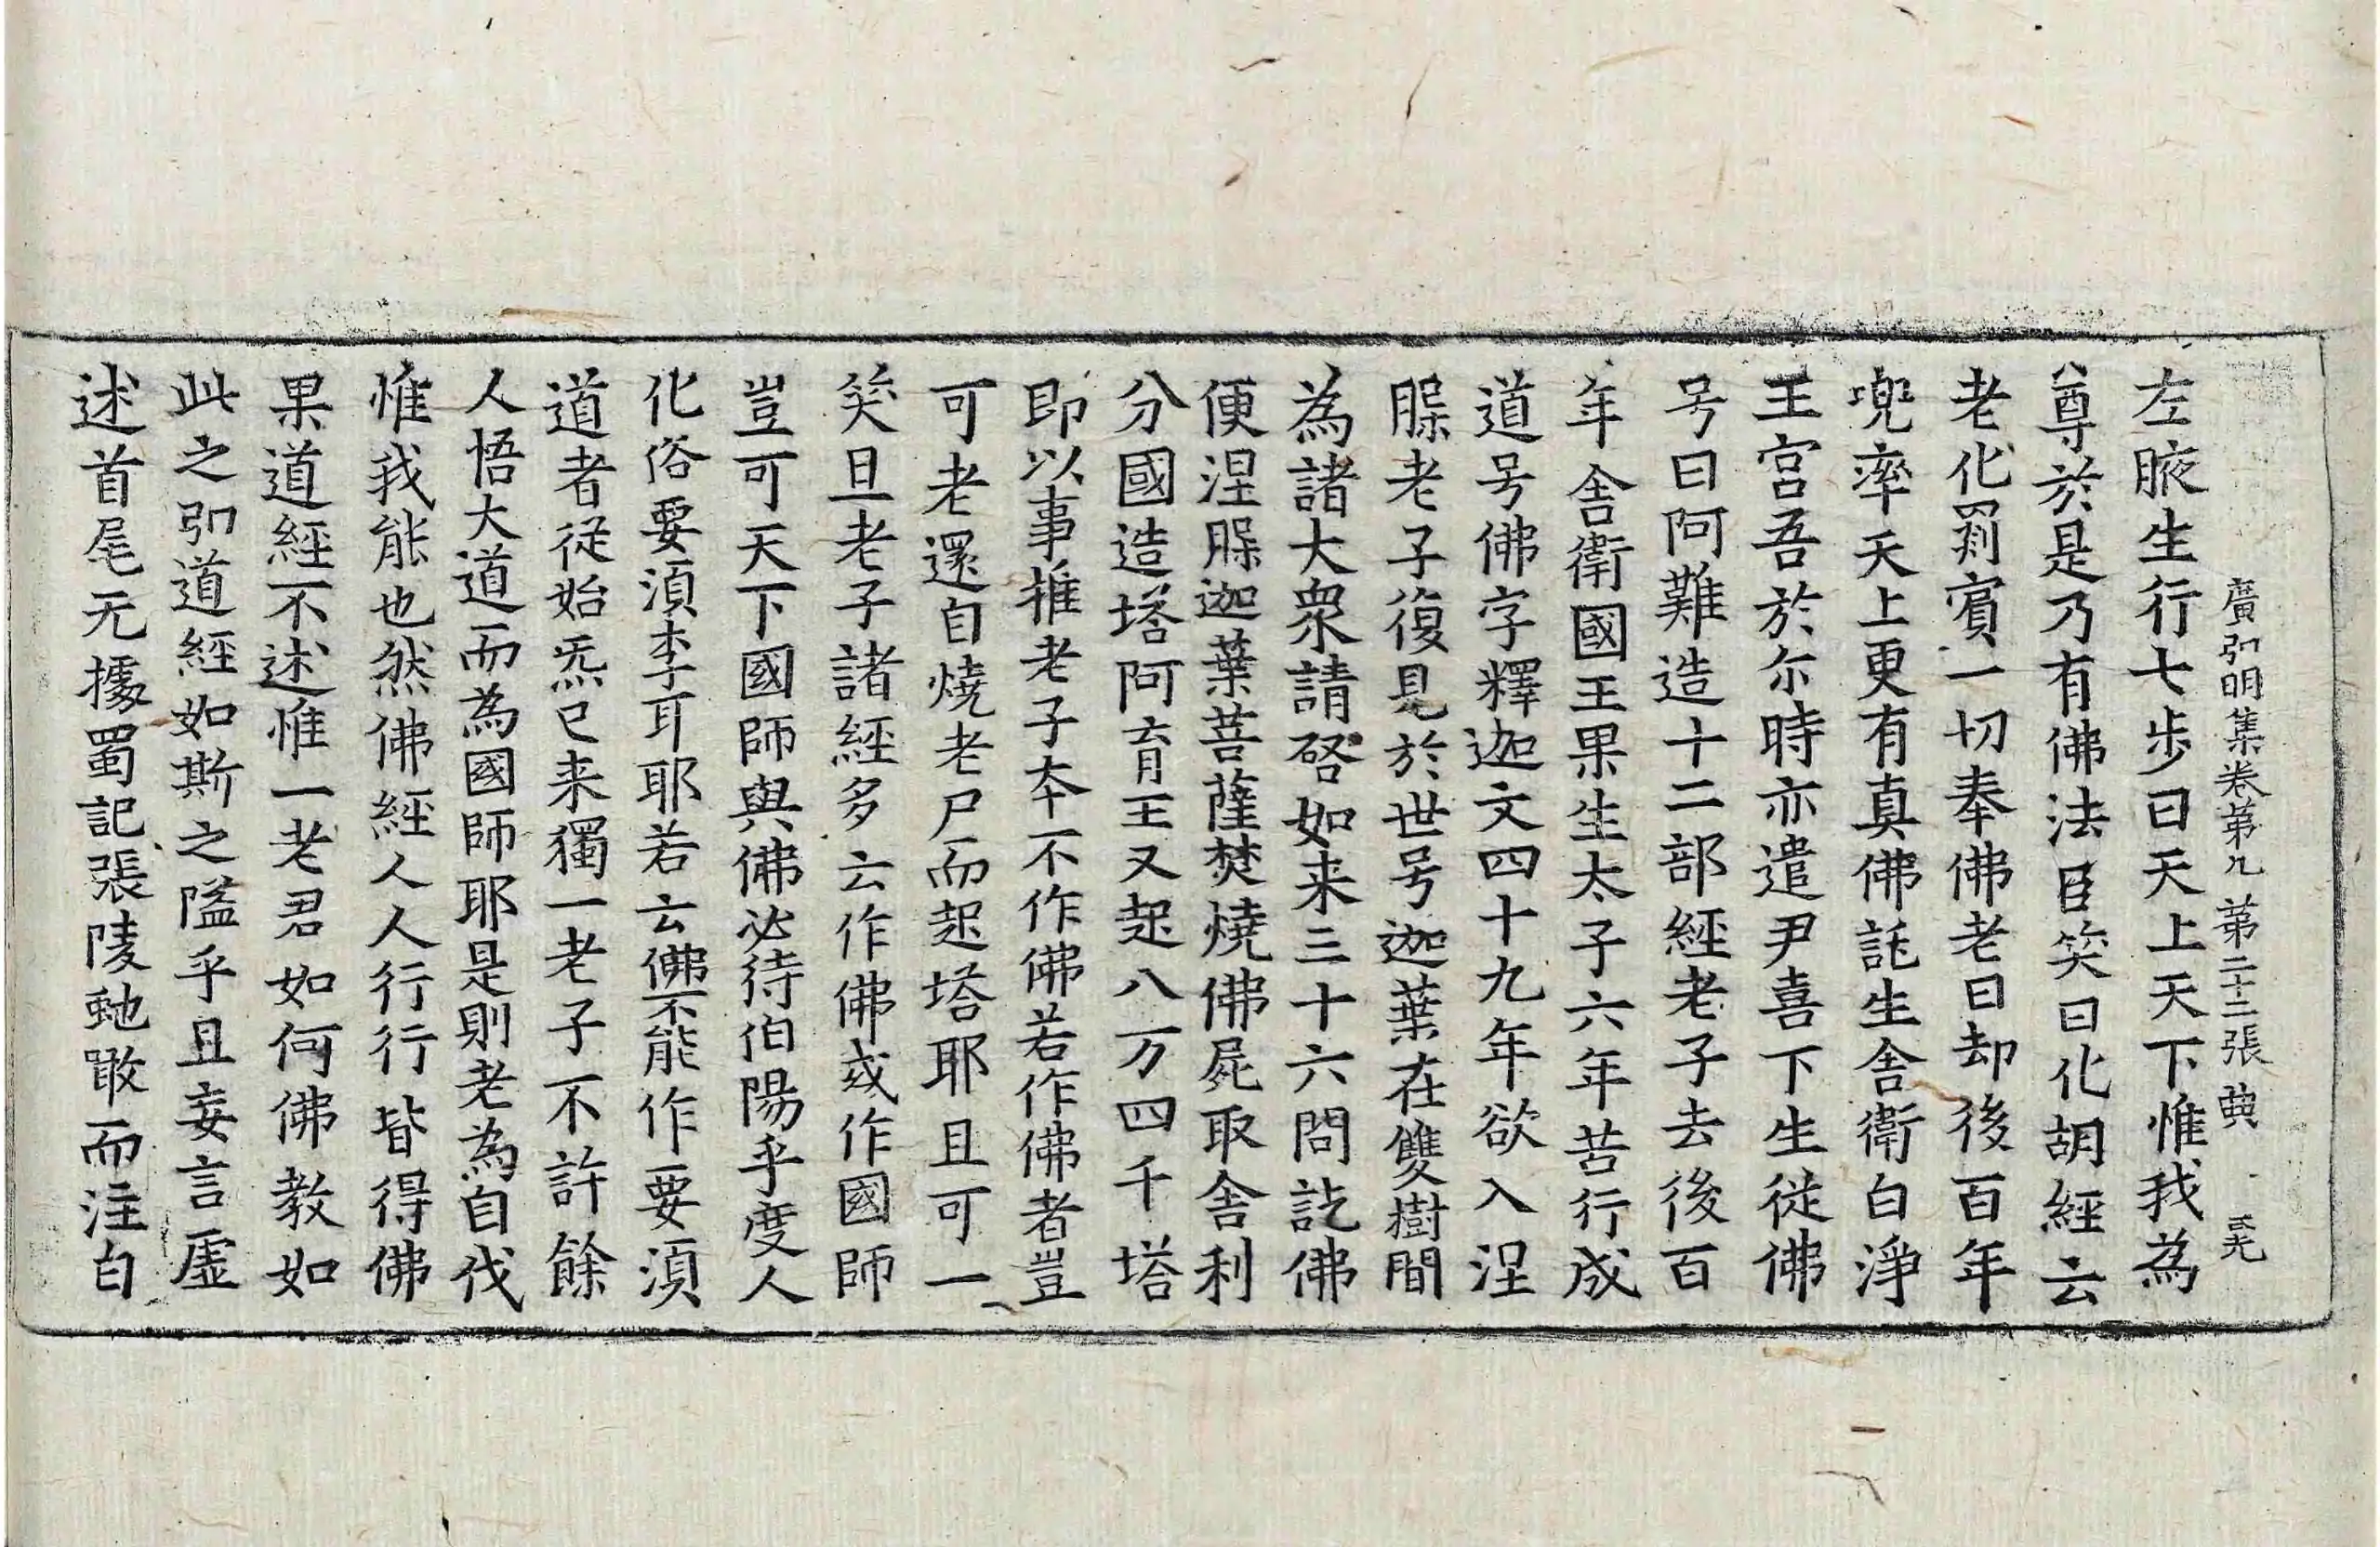 廣弘明集卷第九 第二十三張 典
左腋生行七步曰天上天下惟我為
尊於是乃有佛法臣笑曰化胡經云
老化罽賓一切奉佛老曰却後百年
兜率天上更有真佛託生舍衛白淨
王宮吾於尒時亦遣尹喜下生從佛
号曰阿難造十二部經老子去後百
年舍衛國王果生太子六年苦行成
道号佛字釋迦文四十九年欲入涅
槃老子復見於世号迦葉在雙樹間
為諸大衆請啓如来三十六問訖佛
便涅槃迦葉菩薩焚燒佛屍取舍利
分國造塔阿育王又起八万四千塔
即以事推老子本不作佛若作佛者豈
可老還自燒老尸而起塔耶且可一
笑且老子諸經多云作佛或作國師
豈可天下國師與佛必待伯陽乎度人
化俗要須李耳耶若云佛不能作要須
道者從始炁已来獨一老子不許餘
人悟大道而為國師耶是則老為自伐
惟我能也然佛經人人行行皆得佛
果道經不述惟一老君如何佛教如
此之弘道經如斯之隘乎且妄言虛
述首尾无據蜀記張陵虵噉而注白